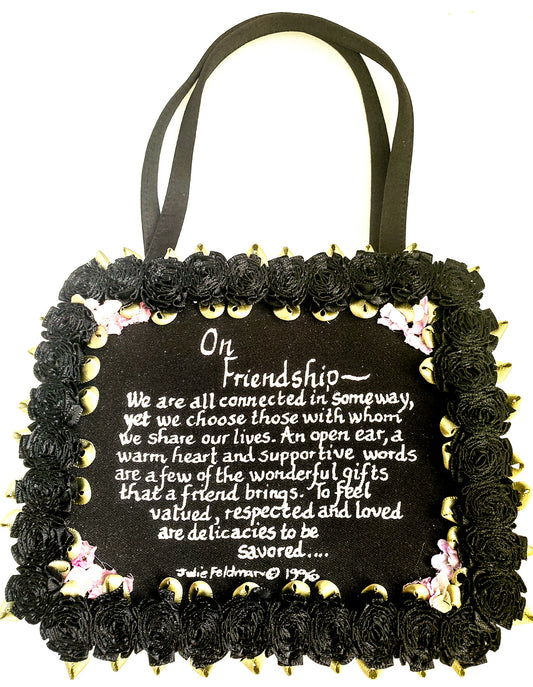 On
Friendship~
We are all connected in someway,
yet we choose those with whom
we share our lives. An open ear, a
warm heart and supportive words
are a few of the wonderful gifts
that a friend brings. To feel
valued, respected and loved
are delicacies to be
savored....
Julie Feldman © 1996